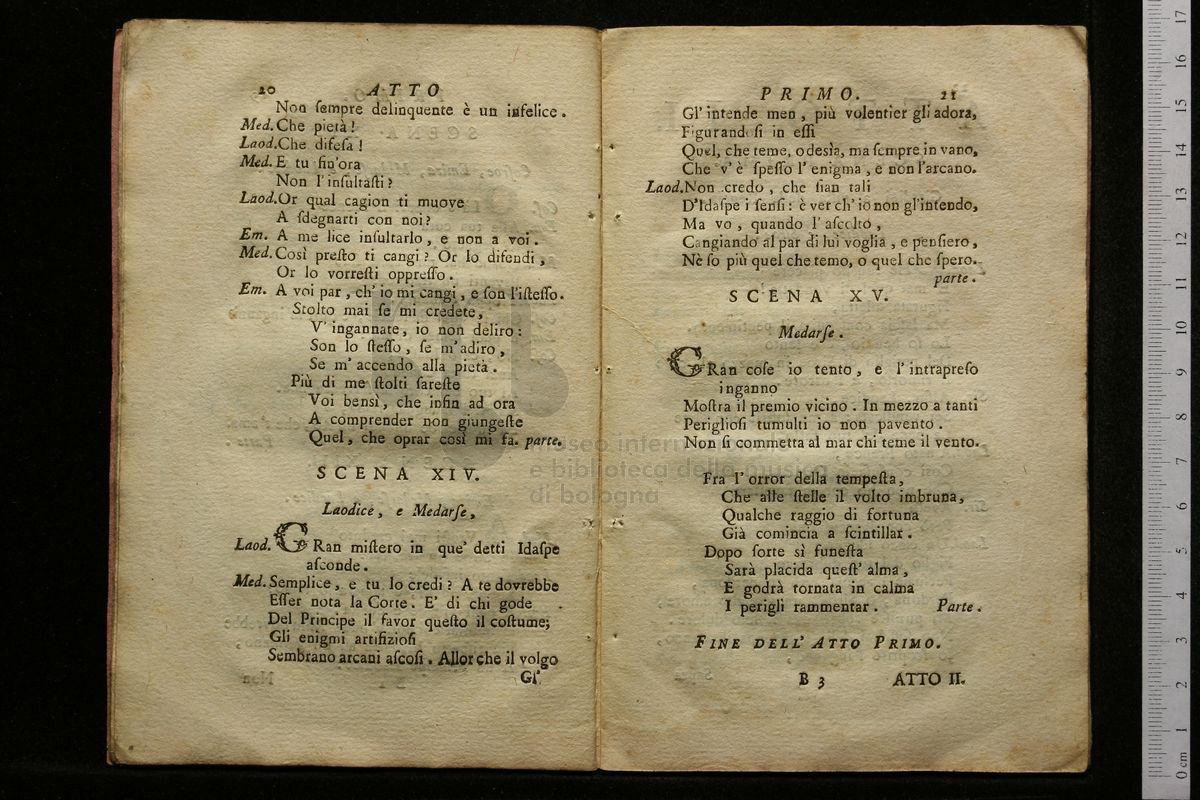 20 ATTO
Non ſempre delinquente è un infelice.
Med. Che pietà!
Laod. Che difeſa!
Med. E tu fin'ora
Non l'inſultaſti?
Laod. Or qual cagion ti muove
A ſdegnarti con noi?
Em. A me lice inſultarlo, e non a voi.
Med. Così preſto ti cangi? Or lo difendi,
Or lo vorreſti oppreſſo.
Em. A voi par, ch'io mi cangi, e ſon l'iſteſſo.
Stolto mai ſe mi credete,
V'ingannate, io non deliro:
Son lo ſteſſo, ſe m'adiro,
Se m'accendo alla pietà.
Più di me ſtolti ſareſte
Voi bensì, che infin ad ora
A comprender non giungeſte
Quel, che oprar così mi fa. parte.
SCENA XIV.
Laodice, e Medarſe,
Laod. GRan miſtero in que' detti Idaſpe
aſconde.
Med. Semplice, e tu lo credi? A te dovrebbe
Eſſer nota la Corte. E' di chi gode
Del Principe il favor queſto il coſtume;
Gli enigmi artifizioſi
Sembrano arcani aſcoſi. Allor che il volgo
Gl'
PRIMO. 21
Gl'intende men, più volentier gli adora,
Figurandoſi in eſſi
Quel, che teme, o desìa, ma ſempre in vano,
Che v'è ſpeſſo l'enigma, e non l'arcano.
Laod. Non credo, che ſian tali
D'Idaſpe i ſenſi: è ver ch'io non gl'intendo,
Ma vo, quando l'aſcolto,
Cangiando al par di lui voglia, e penſiero,
Nè ſo più quel che temo, o quel che ſpero.
parte.
SCENA XV.
Medarſe.
GRan coſe io tento, e l'intrapreſo
inganno
Moſtra il premio vicino. In mezzo a tanti
Periglioſi tumulti io non pavento.
Non ſi commetta al mar chi teme il vento.
Fra l'orror della tempeſta,
Che alle ſtelle il volto imbruna,
Qualche raggio di fortuna
Già comincia a ſcintillar.
Dopo ſorte sì funeſta
Sarà placida queſt'alma,
E godrà tornata in calma
I perigli rammentar. Parte.
FINE DELL'ATTO PRIMO.
B 3 ATTO II.
museo internazionale
e biblioteca della musica
di bologna
0 cm 1 2 3 4 5 6 7 8 9 10 11 12 13 14 15 16 17